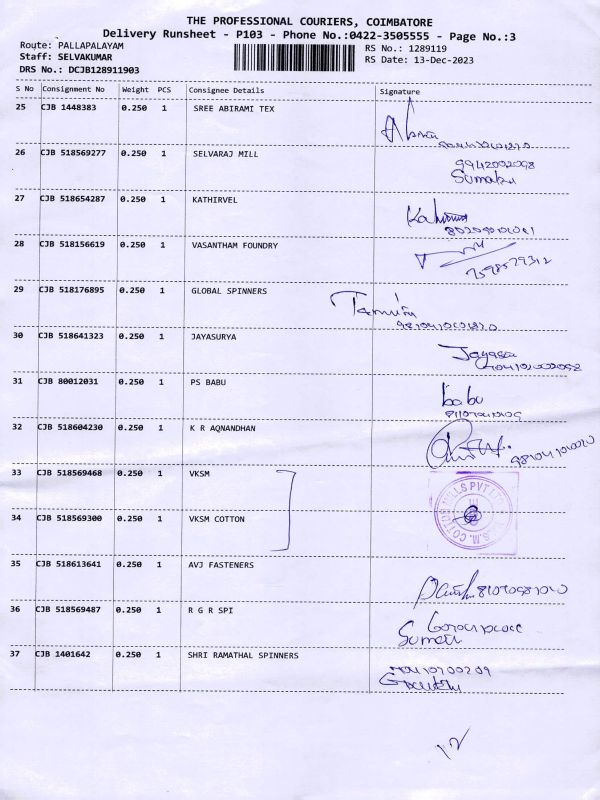 THE PROFESSIONAL COURIERS, COIMBATORE
Delivery Runsheet - P103 - Phone No.:0422-3505555 - Page No.:3
Route: PALLAPALAYAM
RS No.: 1289119
Staff: SELVAKUMAR
RS Date: 13-Dec-2023
DRS No.: DCJB128911903
S No Consignment No Weight PCS Consignee Details Signature
25 CJB 1448383 0.250 1 SREE ABIRAMI TEX
26 CJB 518569277 0.250 1 SELVARAJ MILL
9942002098
27 CJB 518654287 0.250 1 KATHIRVEL
28 CJB 518156619 0.250 1 VASANTHAM FOUNDRY
29 CJB 518176895 0.250 1 GLOBAL SPINNERS
30 CJB 518641323 0.250 1 JAYASURYA
31 CJB 80012031 0.250 1 PS BABU
babu
32 CJB 518604230 0.250 1 K R AQNANDHAN
33 CJB 518569468 0.250 1 VKSM
34 CJB 518569300 0.250 1 VKSM COTTON
35 CJB 518613641 0.250 1 AVJ FASTENERS
36 CJB 518569487 0.250 1 R G R SPI
37 CJB 1401642 0.250 1 SHRI RAMATHAL SPINNERS